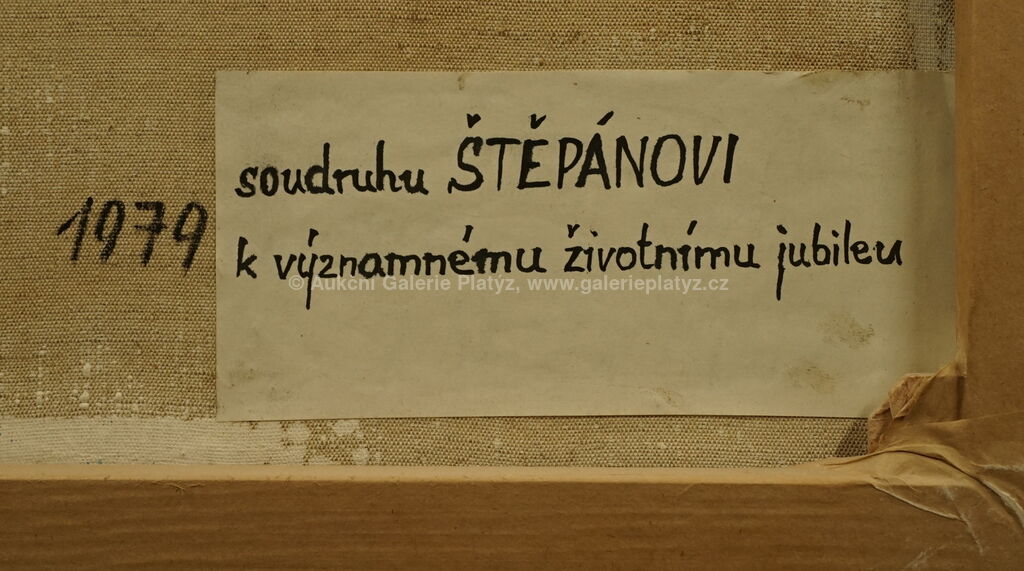 soudruhu ŠTĚPÁNOVI
1979
k významnému životnímu jubileu
© Aukční Galerie Platýz, www.galerieplatyz.cz